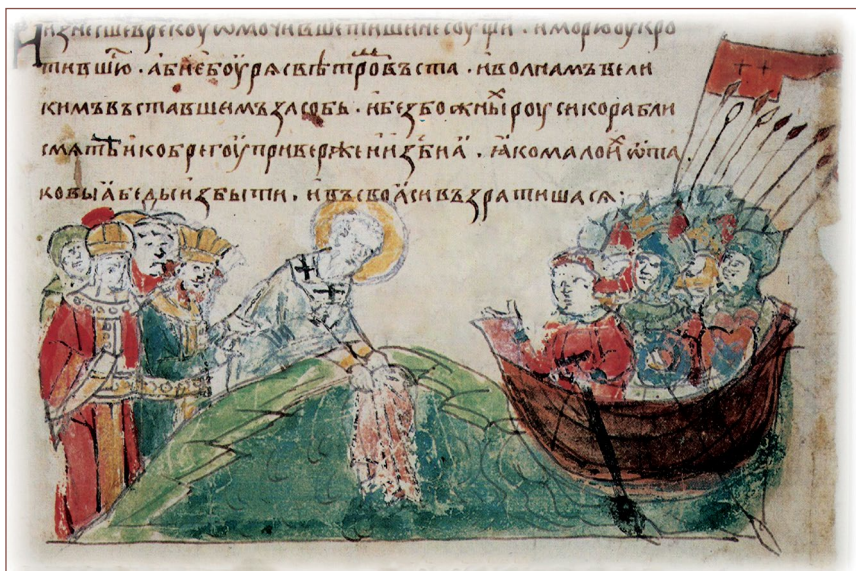 изнесше в рекоу ѡмочивше тишине соущи . и морю оукро
тившюсѧ . абие боурѧ с вѣтром въста . и волнамъ вели
кимъ въставшемъ засобь . и безбожных роуси корабли
смѧте . и к брегоу приверже и изби ѧ . ꙗко мало их ѿ та
ковыѧ беды избыти . и въ своꙗси възратишасѧ .